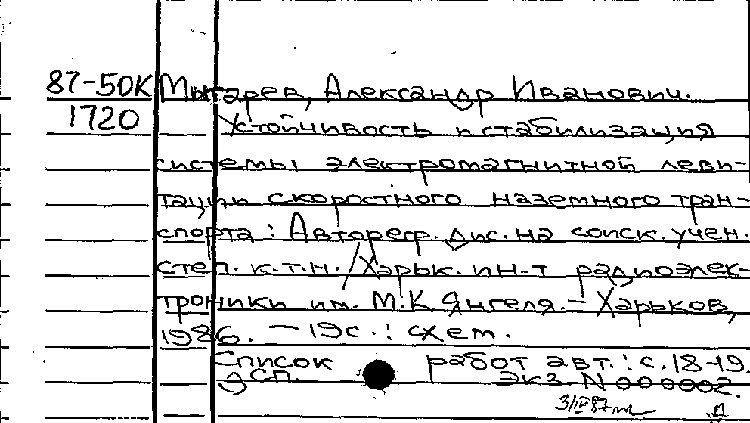 87-50К Мытарев, Александр Иванович.
1720 Устойчивость и стабилизация
системы электромагнитной леви-
тации скоростного наземного тран-
спорта: Автореф. дис. на соиск. учен.
степ. к.т.н. / Харьк. ин-т радиоэлек-
троники им. М.К. Янгеля. – Харьков,
1986. – 19с.: схем.
Список работ авт.: с. 18-19.
ДСП. Экз. N 000002.